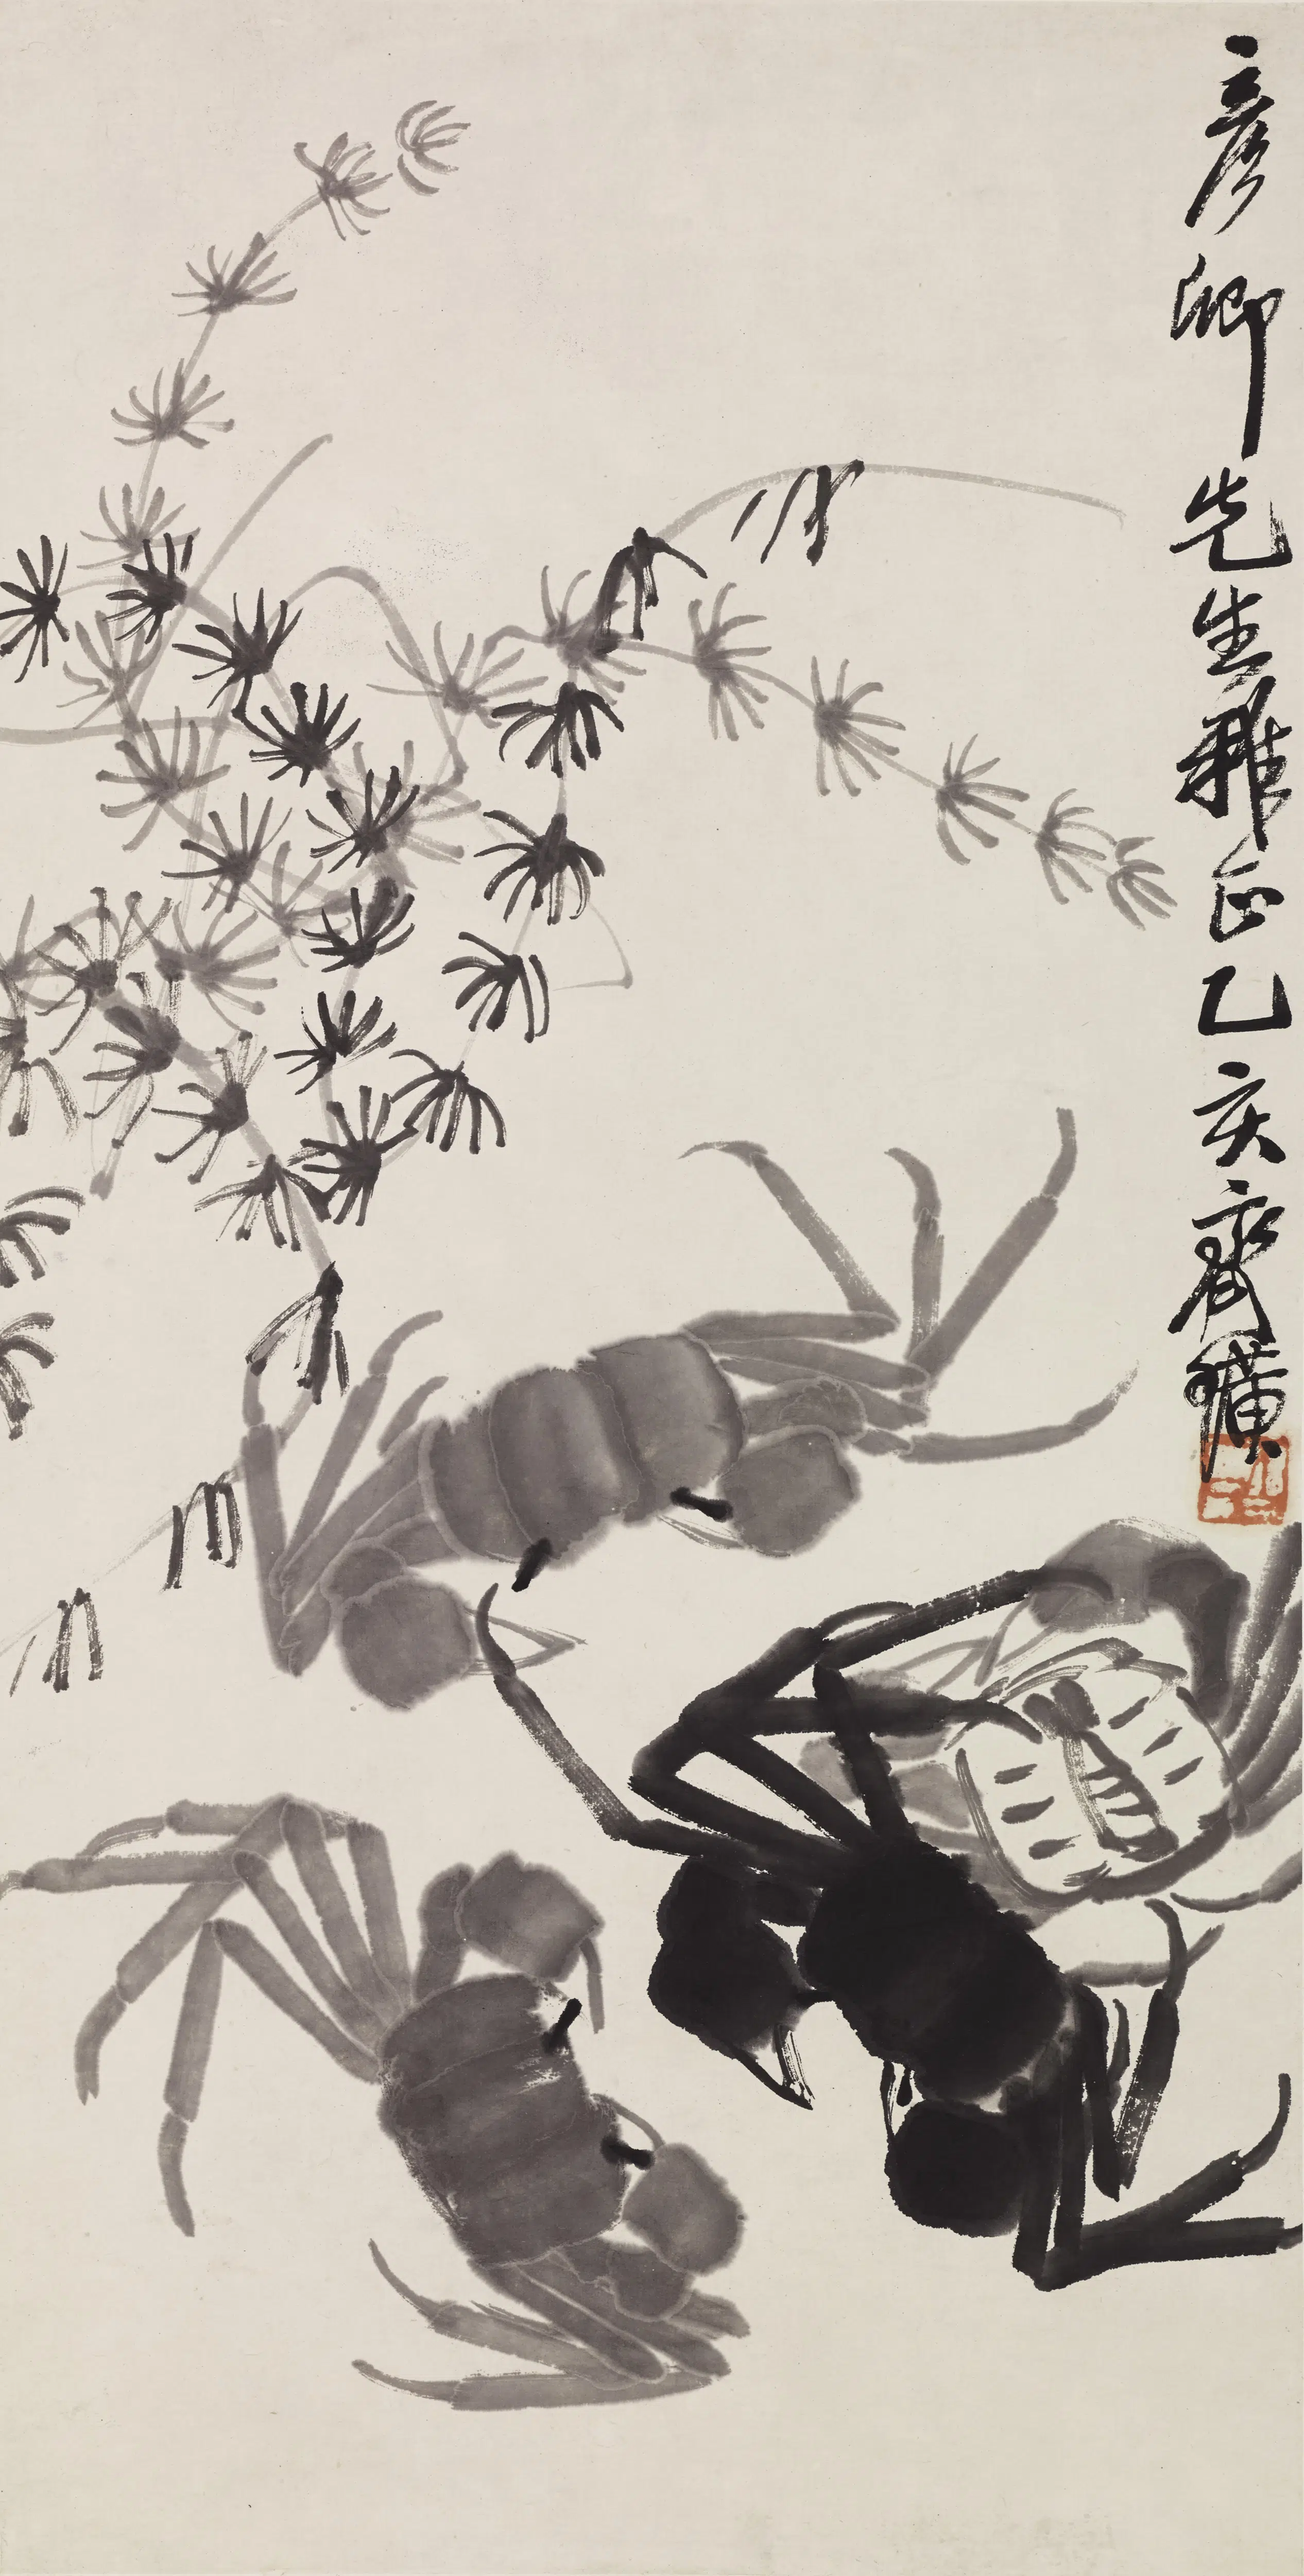 彦卿先生雅正乙亥齊璜